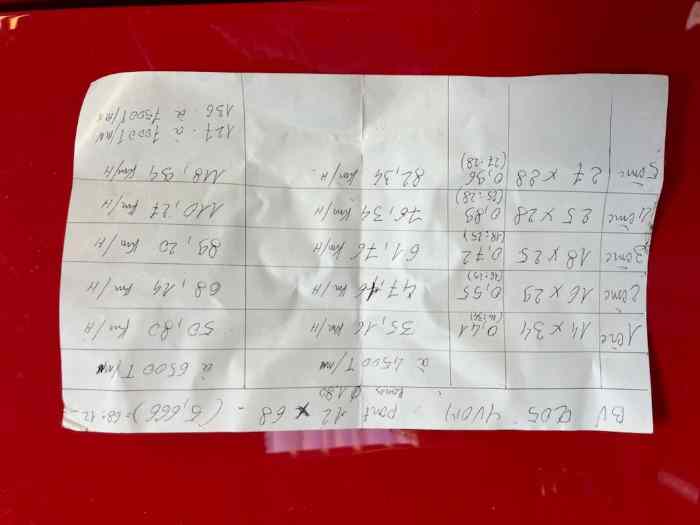 BV 205 pont 12 x 68 - (5,666) = 68:12 -
à 4500 T/mn à 6500 T/mn
1ère 14 x 34 0,41 35,16 km/H 50,80 km/H
(14:34)
2ème 16 x 29 0,55 47,16 km/H 68,14 km/H
(16:29)
3ème 18 x 25 0,72 61,76 km/H 89,20 km/H
(18:25)
4ème 25 x 28 0,89 76,34 km/H 110,27 km/H
(25:28)
5ème 27 x 28 0,96 82,34 km/H 118,94 km/H
(27:28)
127 à 7000 T/mn
136 à 7500 T/mn